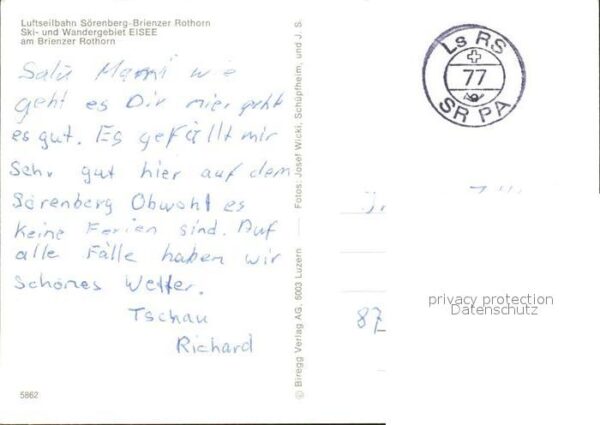 Luftseilbahn Sörenberg-Brienzer Rothorn
Ski- und Wandergebiet EISEE
am Brienzer Rothorn
Salü Mammi wie
geht es Dir mier geht
es gut. Es gefällt mir
Sehr gut hier auf dem
Sörenberg Obwohl es
keine Ferien sind. Auf
alle Fälle haben wir
Schönes Wetter.
Tschau
Richard
5862
© Biregg Verlag AG, 6003 Luzern — Fotos: Josef Wicki, Schüpfheim, und J. S.
Ls RS
77
SR PA
87
privacy protection
Datenschutz